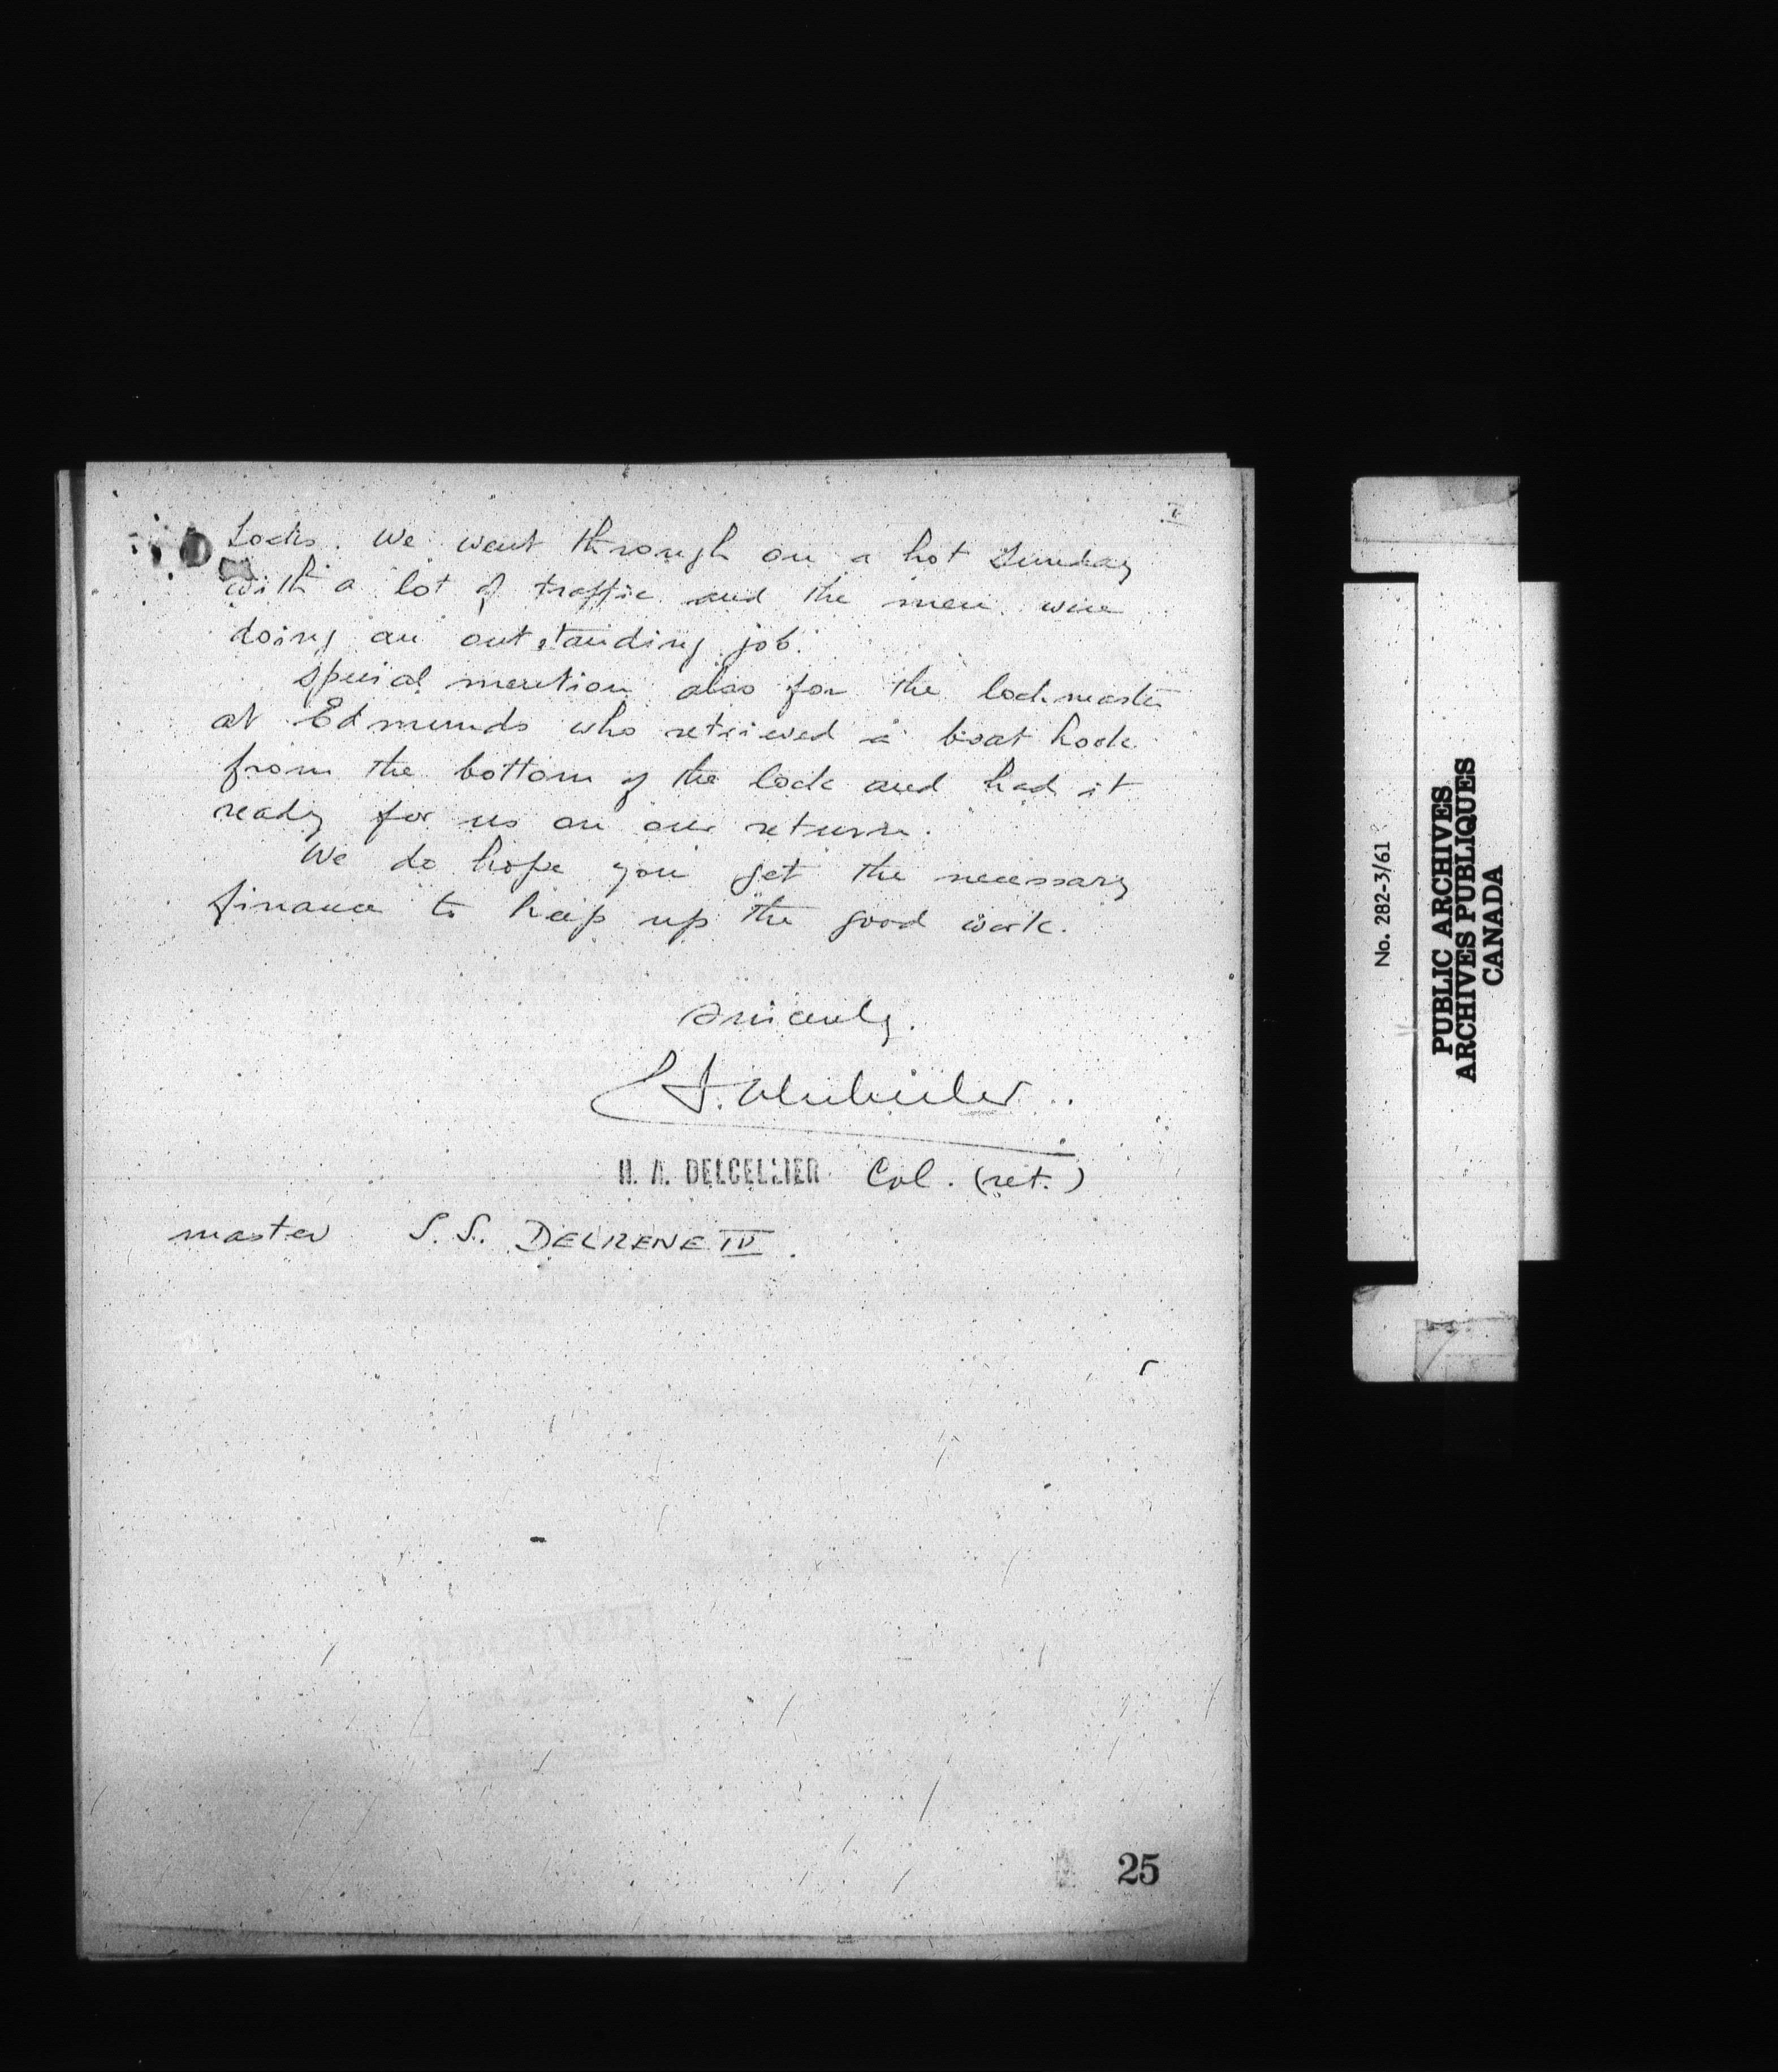 Locks. We went through on a hot Sunday
with a lot of traffic and the men were
doing an outstanding job.
Special mention also for the lockmaster
at Edmunds who retrieved a boat hook
from the bottom of the lock and had it
ready for us on our return.
We do hope you get the necessary
finance to keep up the good work.
Sincerely.
H. A. DELCELLIER Col. (ret.)
master S.S. DELRENE IV.
25
No. 282-3/61
PUBLIC ARCHIVES
ARCHIVES PUBLIQUES
CANADA